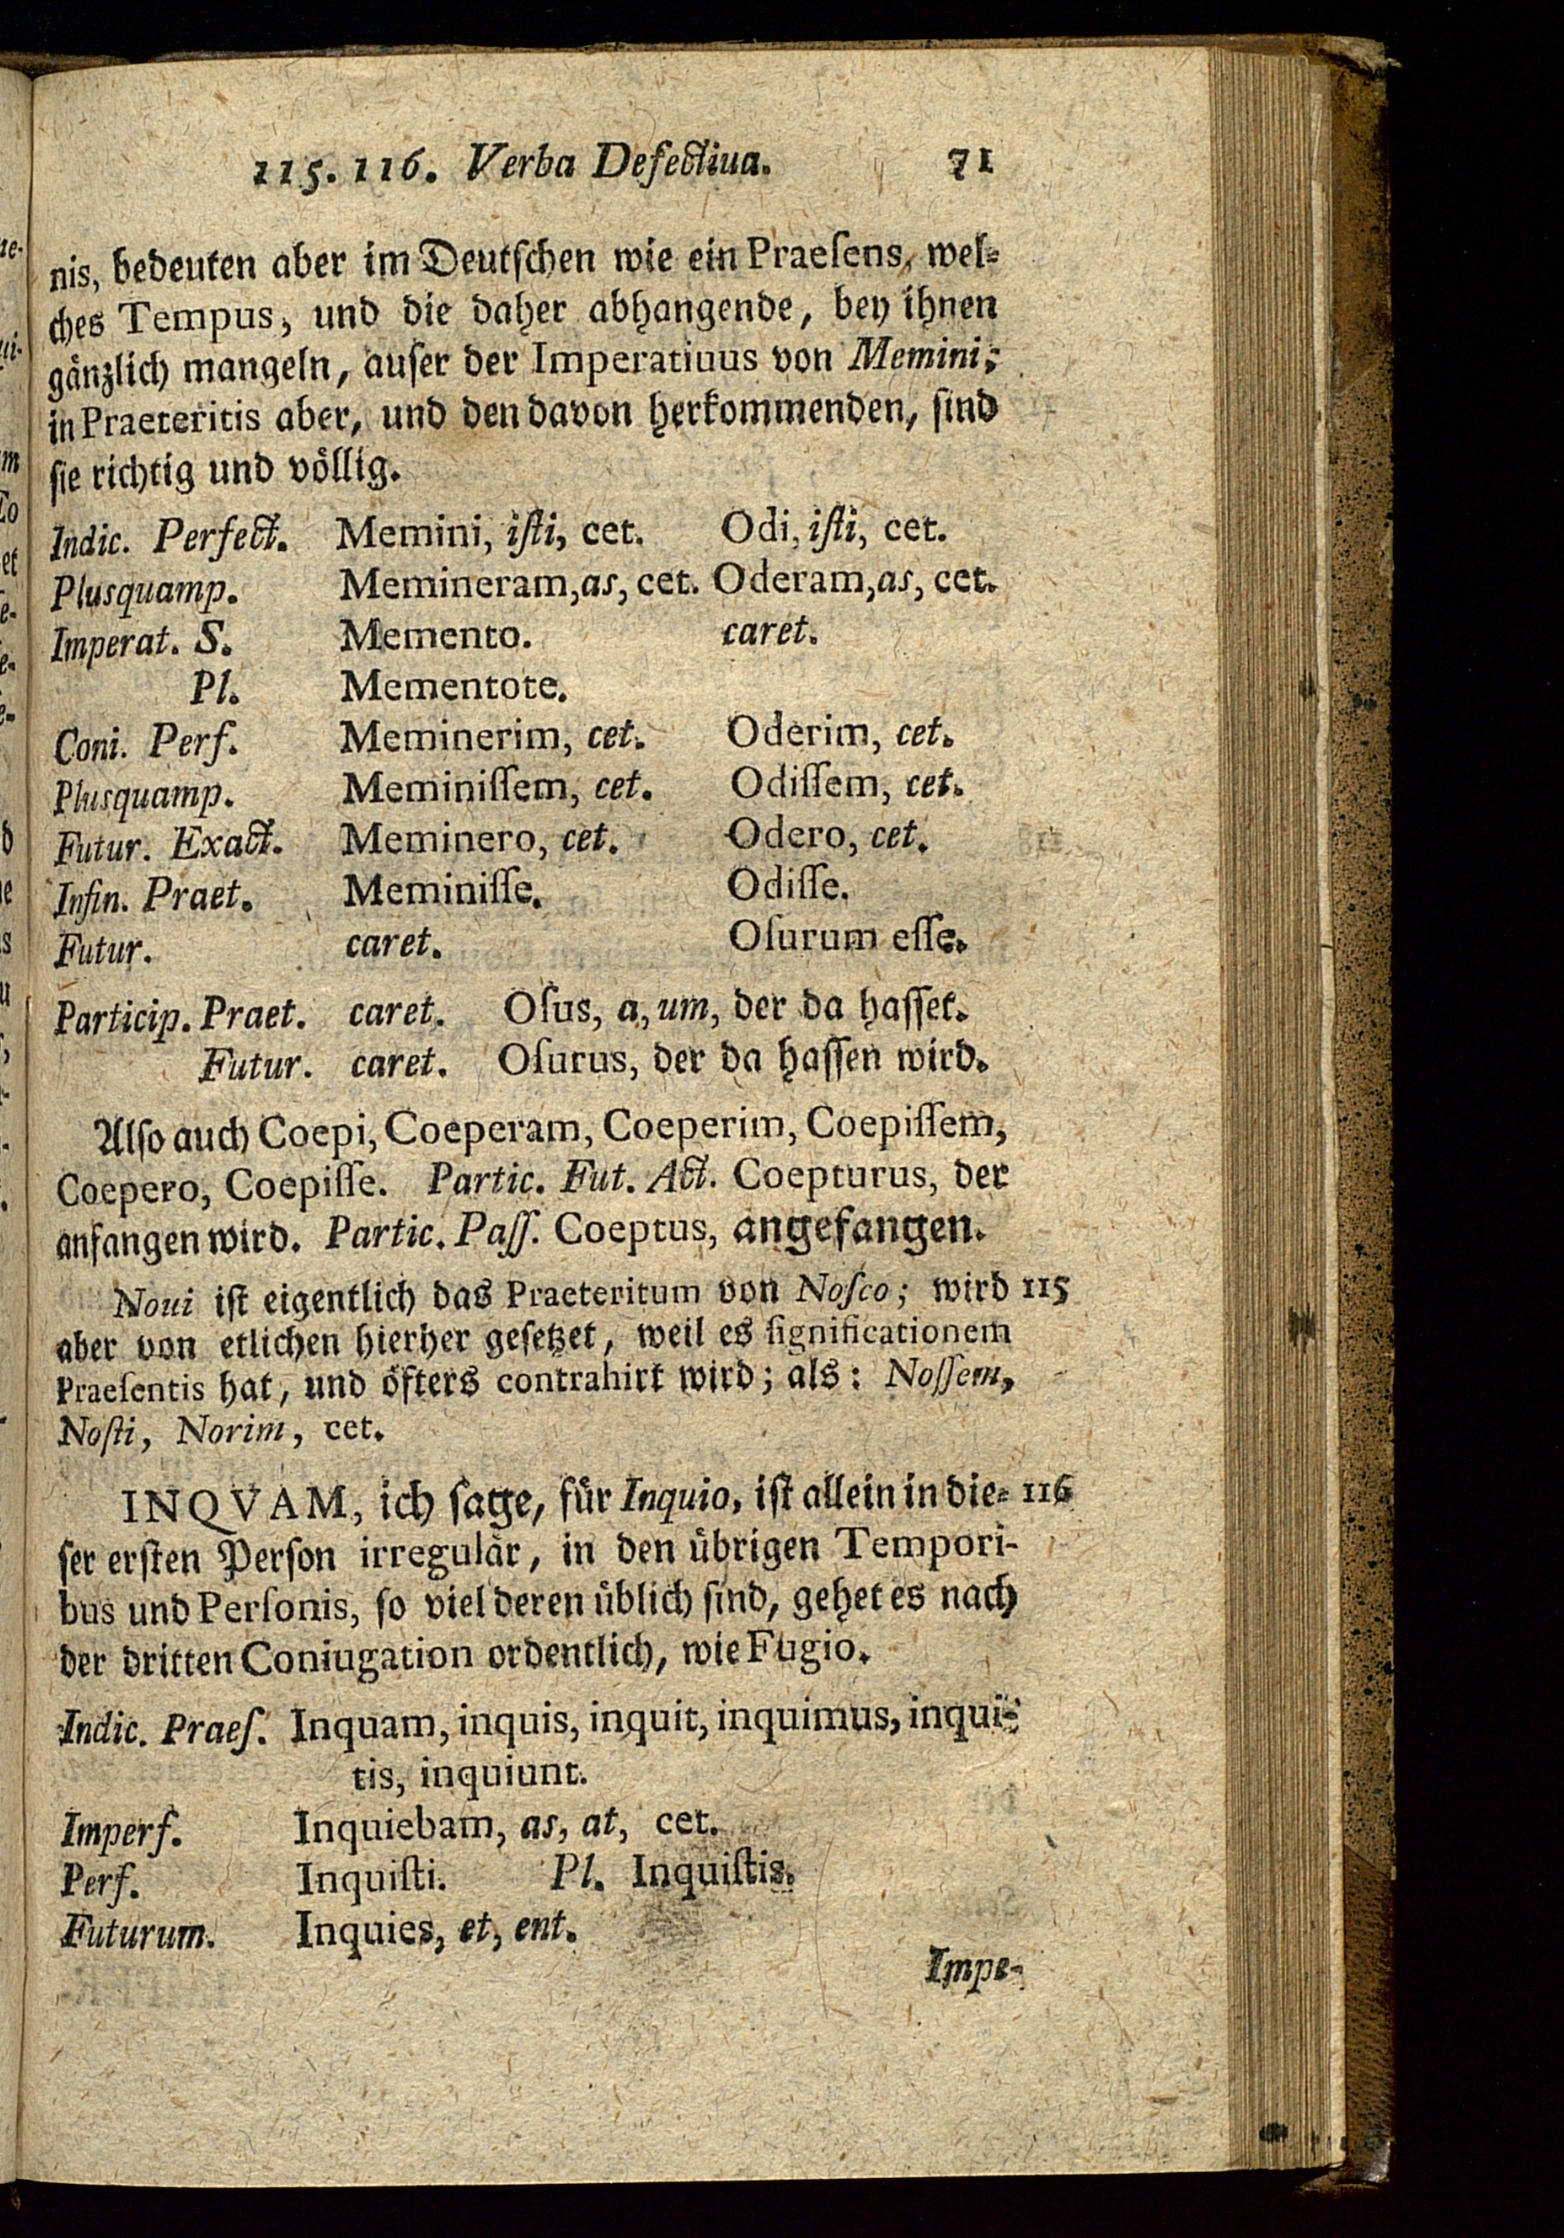 115. 116. Verba Defectiua. 71
nis, bedeuten aber im Deutschen wie ein Praeſens, wel⸗
ches Tempus, und die daher abhangende, bey ihnen
gänzlich mangeln, auſer der Imperatiuus von Memini;
in Praeteritis aber, und den davon herkommenden, ſind
ſie richtig und völlig.
Indic. Perfect. Memini, iſti, cet. Odi, iſti, cet.
Plusquamp. Memineram, as, cet. Oderam, as, cet.
Imperat. S. Memento. caret.
Pl. Mementote.
Coni. Perf. Meminerim, cet. Oderim, cet.
Plusquamp. Meminiſſem, cet. Odiſſem, cet.
Futur. Exact. Meminero, cet. Odero, cet.
Infin. Praet. Meminiſſe. Odiſſe.
Futur. caret. Oſurum eſſe.
Particip. Praet. caret. Oſus, a, um, der da haſſet.
Futur. caret. Oſurus, der da haſſen wird.
Alſo auch Coepi, Coeperam, Coeperim, Coepiſſem,
Coepero, Coepiſſe. Partic. Fut. Act. Coepturus, der
anfangen wird. Partic. Paſſ. Coeptus, angefangen.
Noui iſt eigentlich das Praeteritum von Noſco; wird 115
aber von etlichen hierher geſetzet, weil es ſignificationem
Praeſentis hat, und öfters contrahirt wird; als: Noſſem,
Noſti, Norim, cet.
INQVAM, ich ſage, für Inquio, iſt allein in die⸗ 116
ſer erſten Perſon irregulär, in den übrigen Tempori-
bus und Perſonis, ſo viel deren üblich ſind, gehet es nach
der dritten Coniugation ordentlich, wie Fugio.
Indic. Praeſ. Inquam, inquis, inquit, inquimus, inqui-
tis, inquiunt.
Imperf. Inquiebam, as, at, cet.
Perf. Inquiſti. Pl. Inquiſtis.
Futurum. Inquies, et, ent.
Impe-